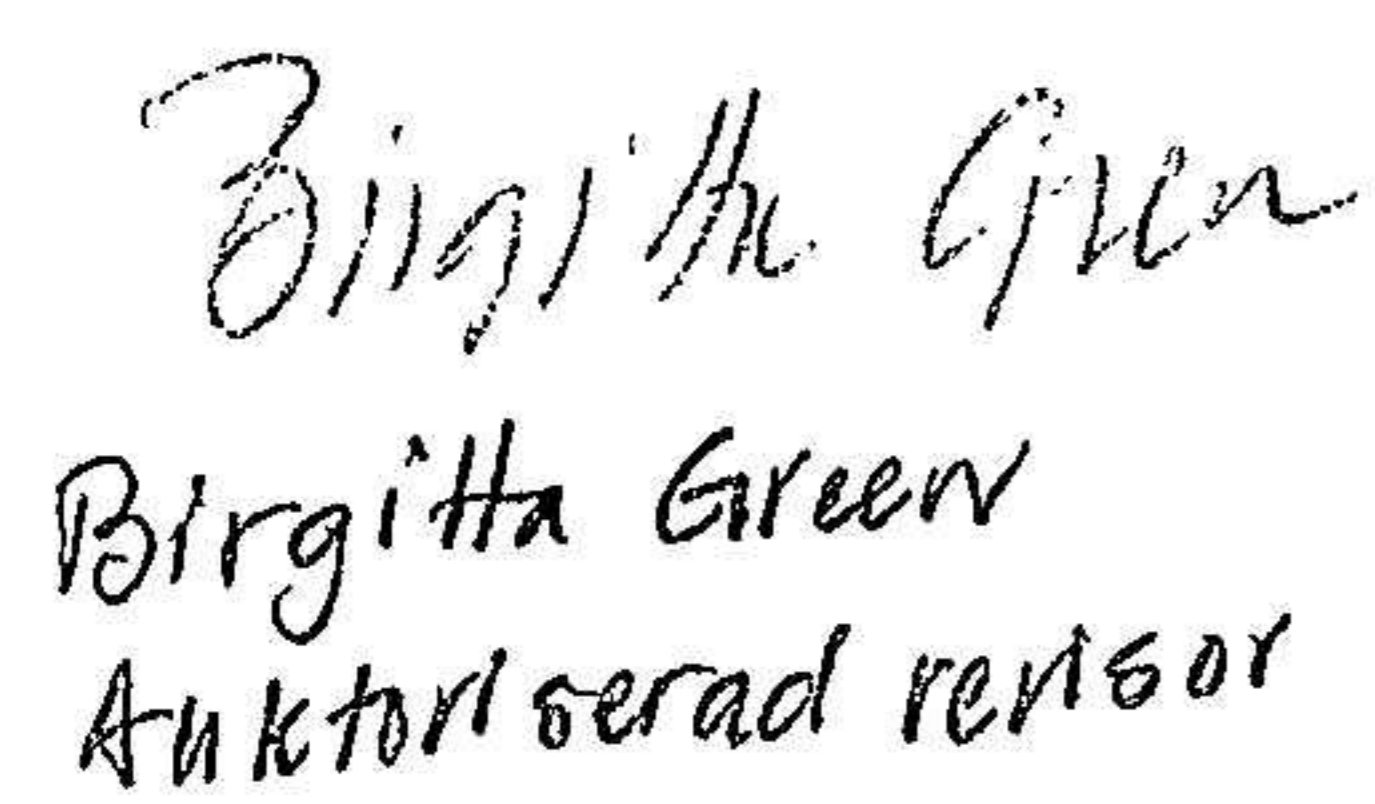 Birgitta Green
Birgitta Green
Auktoriserad revisor